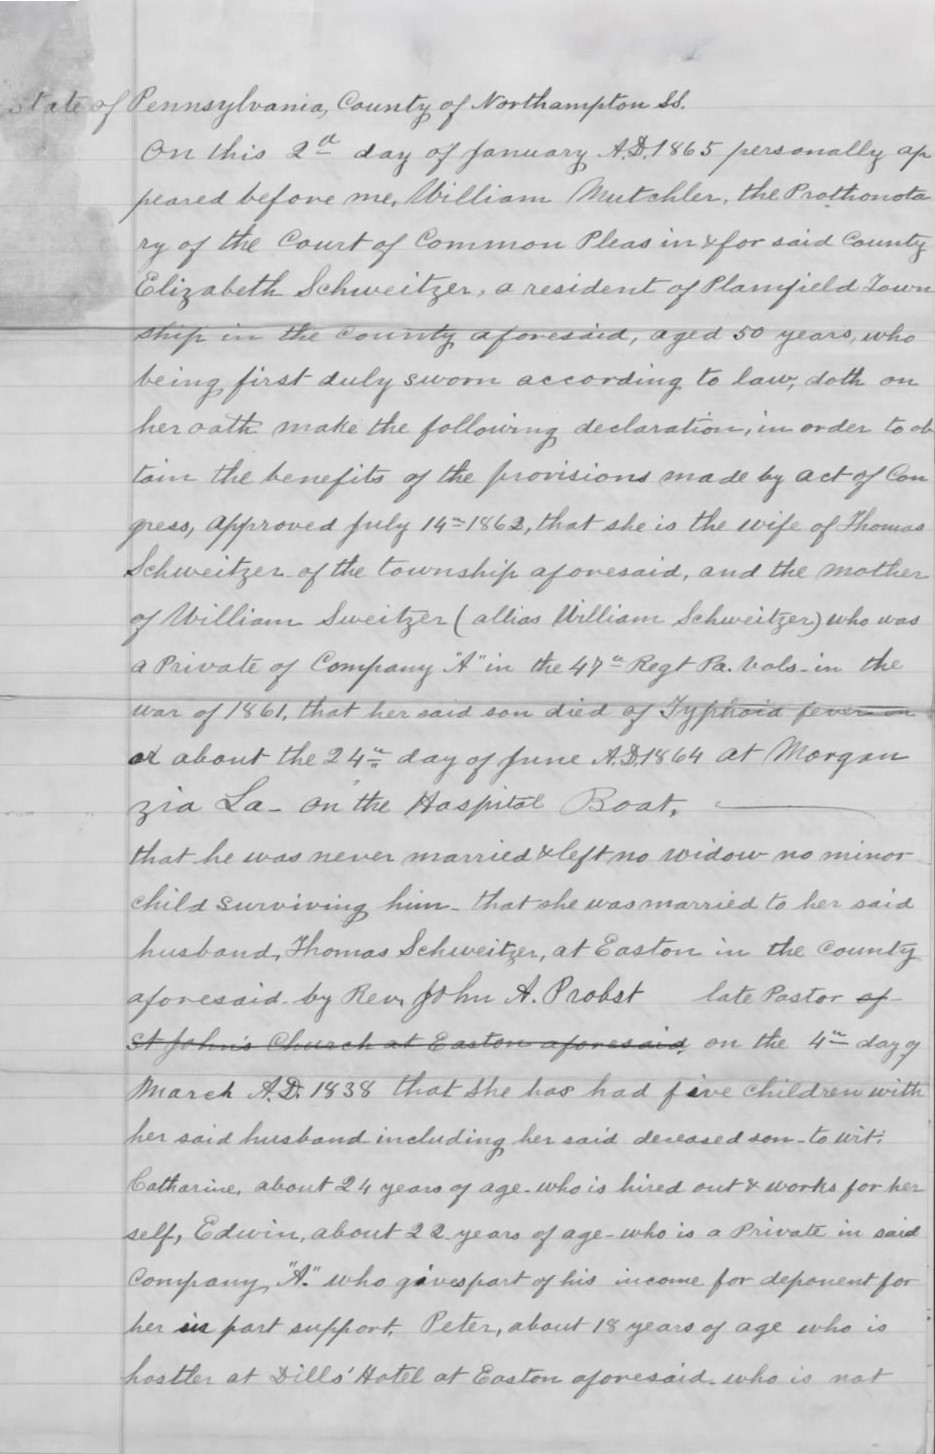 State of Pennsylvania, County of Northampton SS.
On this 2d day of January A.D. 1865 personally ap
peared before me, William Mutchler, the Prothonota
ry of the Court of Common Pleas in & for said County
Elizabeth Schweitzer, a resident of Plainfield Town
ship in the County aforesaid, aged 50 years, who
being first duly sworn according to law, doth on
her oath make the following declaration, in order to ob
tain the benefits of the provisions made by act of Con
gress, approved July 14th 1862, that she is the wife of Thomas
Schweitzer of the township aforesaid, and the mother
of William Sweitzer (allias William Schweitzer) who was
a Private of Company "A" in the 47th Regt Pa. Vols. in the
war of 1861, that her said son died of Typhoid fever on
or about the 24th day of June A.D. 1864 at Morgan
zia La- on the Hospital Boat,
that he was never married & left no widow no minor
child surviving him - that she was married to her said
husband, Thomas Schweitzer, at Easton in the County
aforesaid by Rev. John A. Probst late Pastor of
St John's Church at Easton aforesaid, on the 4th day of
March A.D. 1838 that she has had five children with
her said husband including her said deceased son - to wit:
Catharine, about 24 years of age - who is hired out & works for her
self, Edwin, about 22 years of age - who is a Private in said
Company "A." who gives part of his income for deponent for
her in part support, Peter, about 18 years of age who is
hostler at Dills' Hotel at Easton aforesaid. who is not